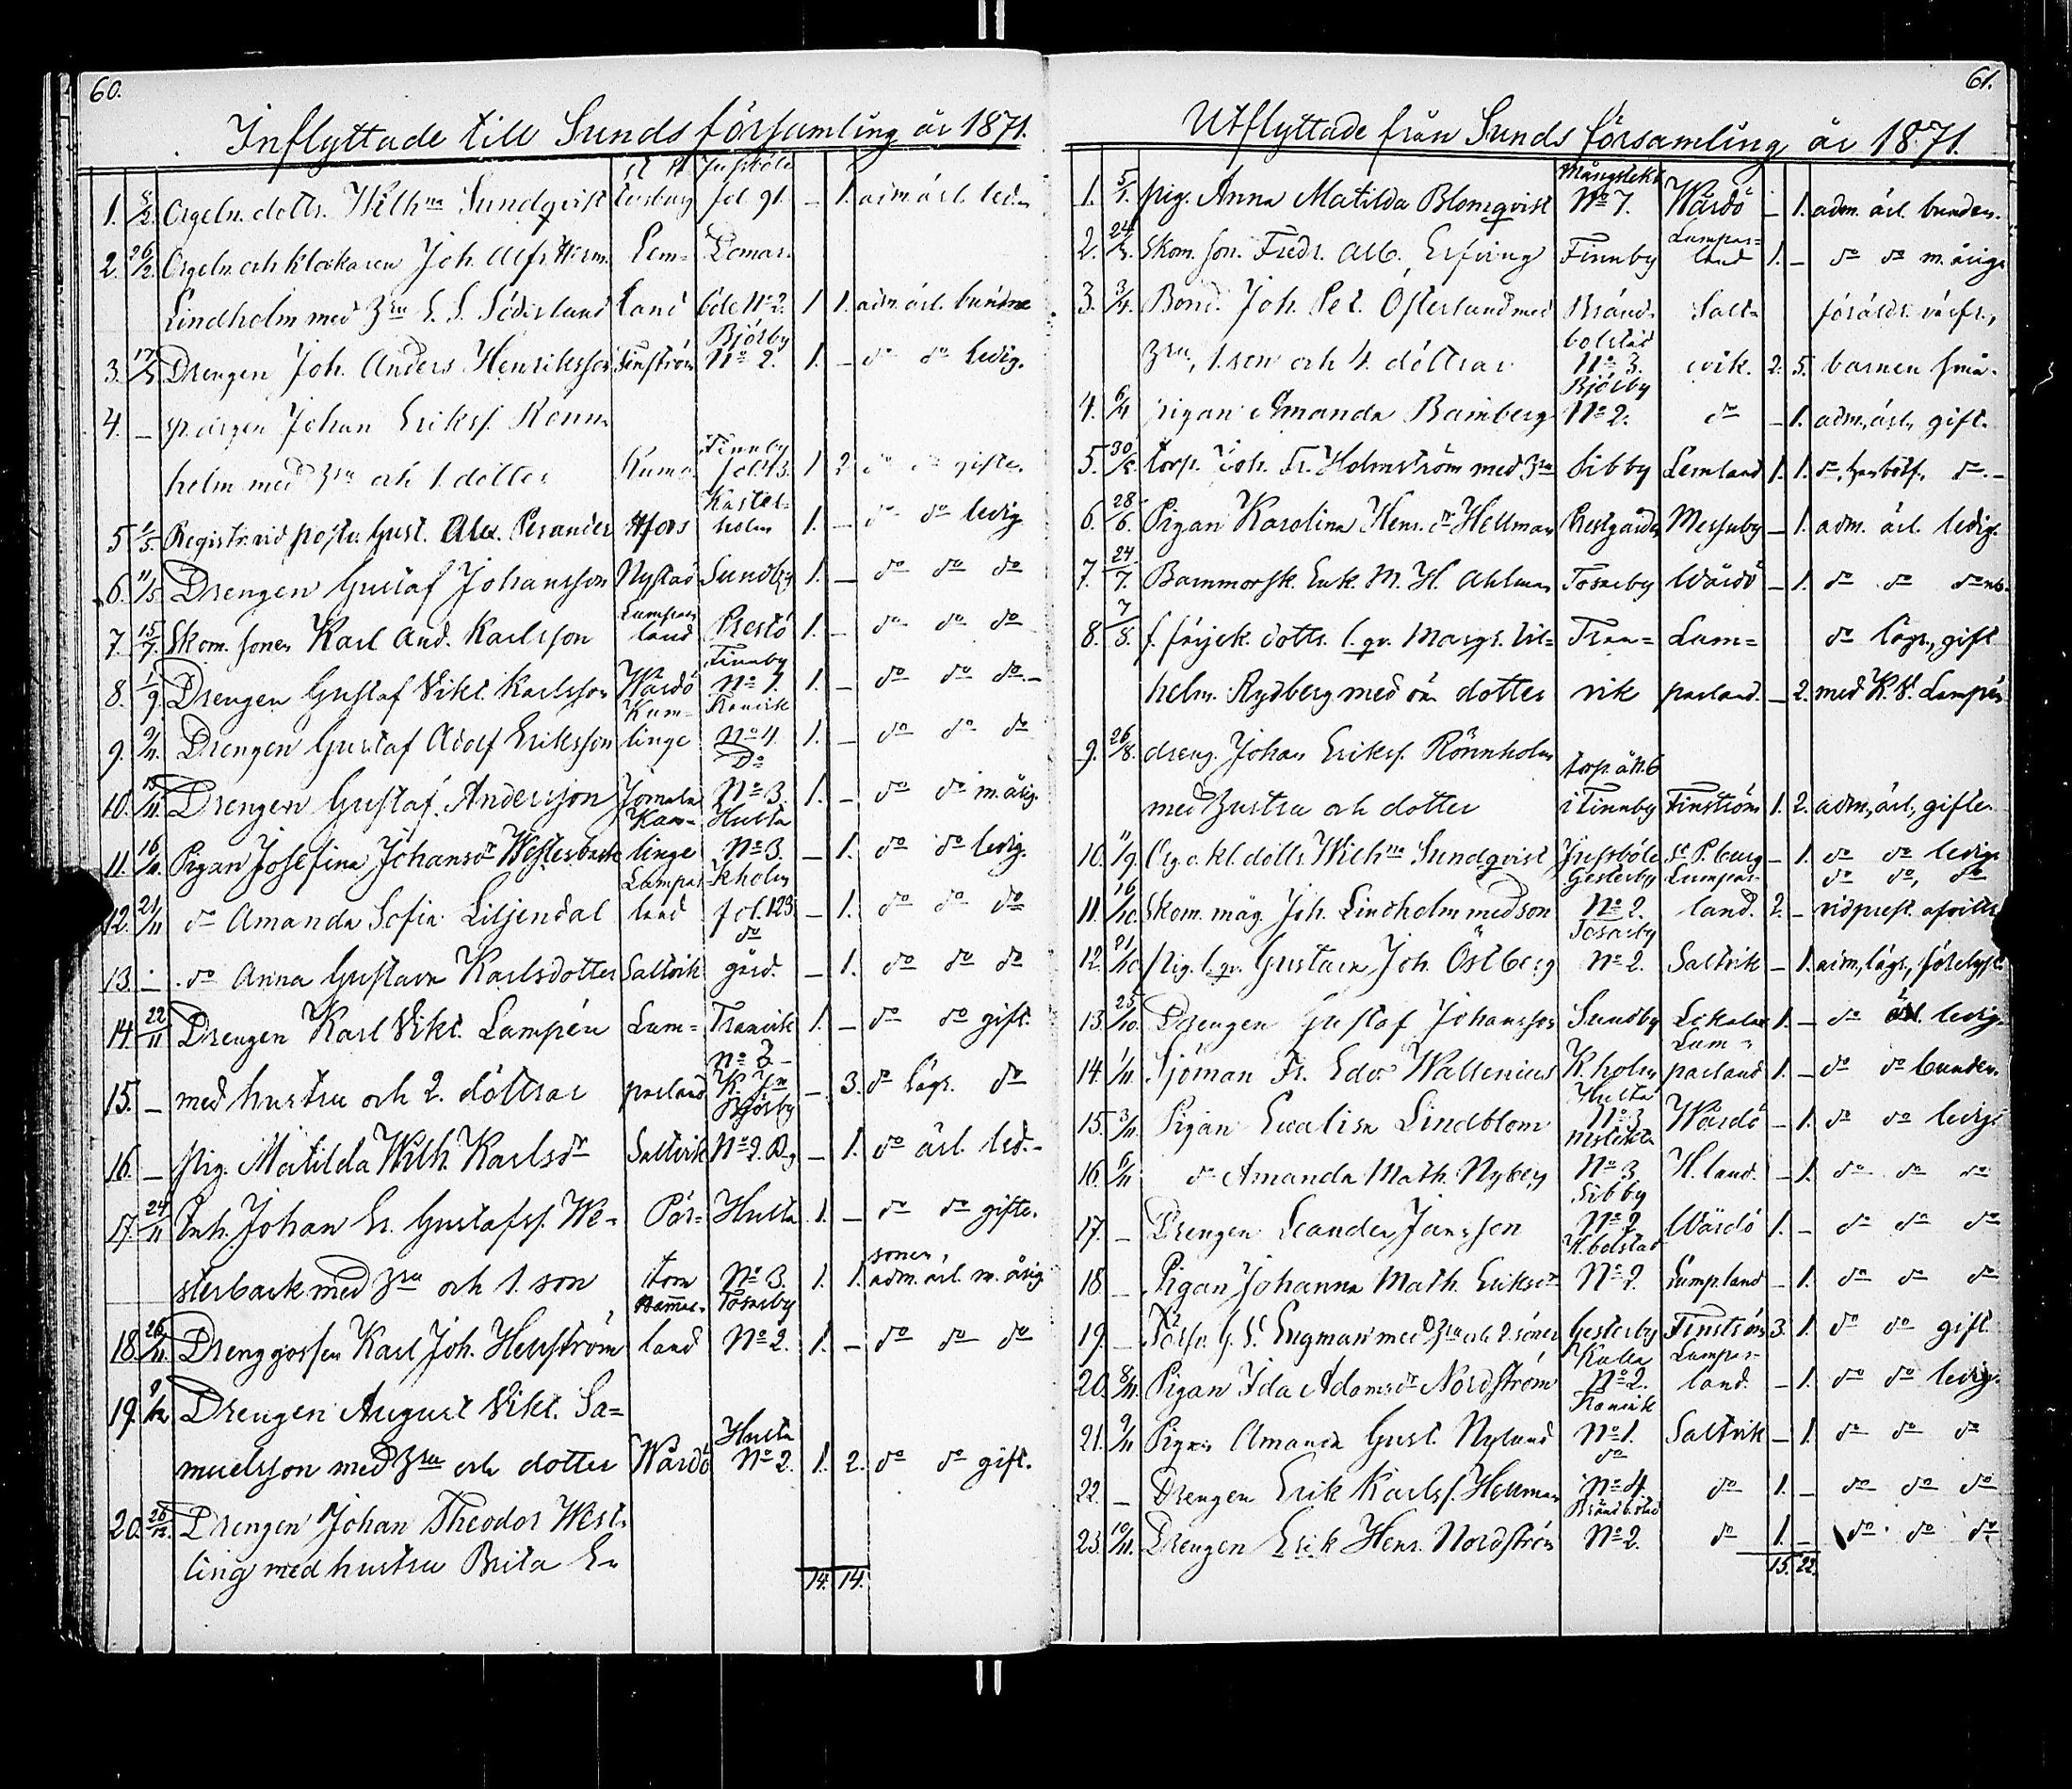 60.
Inflyttade till Sunds församling år 1871.
1. 5/2. Orgeln. dottr. Wilhna Sundqvist fol 91. — 1. adm. ärl. led.
2. 26/2. Orgeln. och klockaren Joh. Alfr. Herm. Lem- Domar-
Lindholm med Hru E. S. Söderlund land böle No 2. 1. 1. adm. ärl. bundne
3. 17/3 Drengen Joh. Anders Henriksson Finström Björby No 2. 1. — do do ledig.
4. — Johan Eriks. Rönn-
holm med Hru och 1. dotter Kumo Finnby fol. 43. 1 2 do do gifte.
5 1/5. Registr. vid post. Gust. Alex. Perander Hfors Kastel-holm 1. — do do ledig
6. 11/5 Drengen Gustaf Johansson Nystad Sundby 1. — do do do
7. 15/7. Skom. sonen Karl And. Karlsson Lumpar land Prestö 1. — do do do
8. 1/9 Drengen Gustaf Vikt. Karlsson Wårdö Finnby No 1. 1. — do do do
9. 9/11. Drengen Gustaf Adolf Eriksson Kum-linge Tranvik No 4. 1. — do do do
10. 13/11 Drengen Gustaf Andersson Jomala Do No 3. 1. — do do m. årig.
11. 16/11. Pigan Josefina Johansdr Westerback Kum-linge Hulta No 3. — 1. do do ledig.
12. 21/11 do Amanda Sofia Liljendal Lumpar land Kholm fol. 123 — 1. do do do
13 — do Anna Gustava Karlsdotter Saltvik do gård. — 1. do do do
14. 22/11 Drengen Karl Vikt. Lampén Lum= Tranvik 1. — do do gift.
15. — med hustru och 2. döttrar parland No 3 — 3. do lägr. do
16. — pig. Matilda Wilh. Karlsdr Saltvik Björby No 2. — 1. do ärl. led.
17. 24/11 Inh. Johan Er. Gustafs. We- Pör- Hulta 1. — do do gifte.
sterback med Hru och 1. son tom No 3. 1. 1. sonen, adm. ärl. m. årig
18. 26/11. Drenggossen Karl Joh. Hellström Hammar-land Tosarby No 2. 1. — do do do
19. 9/12 Drengen August Vikt. Sa=
muelsson med Hru och dotter Wårdö Hulta No 2. 1. 2. do do gift.
20. 26/12. Drengen Johan Theodor West-
ling med hustru Brita Er
14. 14.
61.
Utflyttade från Sunds församling år 1871.
1. 5/1. pig. Anna Matilda Blomqvist Mångstekt No 7. Wårdö — 1. adm. ärl. bunden.
2. 24/3. Skom. son. Fredr. Alb. Erfving Finnby Lumpar=land 1. — do do m. årig
3. 3/4. Bond. Joh. Pet. Österlund med Bränd- Salt- föräldr. värfr.,
Hru, 1. son och 4. döttrar bolstad No 3. vik. 2. 5. barnen små.
4. 6/4 pigan Amanda Bamberg Björby No 2. do — 1. adm., ärl., gift.
5. 30/5. torp. Joh. Fr. Holmström med Hru Sibby Lemland 1. 1. do
6. 28/6. Pigan Karolina Henr. dr Hellman Prestgården Messuby — 1. adm. ärl. ledig.
7. 24/7. Barnmorsk. Enk. M. H. Ahlman Tosarby Wårdö — 1. do do
8. 7/8. f. färjek. dottr. l. qv. Margr. Vil= Tran= Lum= do lägr., gift
helm. Rydberg med en dotter vik parland. — 2. med K. V. Lampén
9. 26/8. dreng. Johan Eriks. Rönnholm torp.
med hustru och dotter i Finnby Finström 1. 2. adm., ärl., gifte.
10. 11/9. Org. o. kl. dottr. Wilhna Sundqvist Jussböle St P. burg — 1. do do ledig
11. 16/10. Skom. måg. Joh. Lindholm med son Gesterby No 2. Lumpar-land. 2. — do do, do
12. 21/10 Pig. l. qv. Gustava Joh. Östberg Tosarby No 2. Saltvik — 1. adm., lägr.,
13. 25/10. Drengen Gustaf Johansson Sundby Lokalax 1. — do ärl. ledig.
14. 1/11. Sjöman Fr. Edv. Wallenius K. holm Lum-parland 1. — do do bunden.
15. 3/11. Pigan Evalisa Lindblom Hulta No 3 Wårdö — 1. do do ledig
16. 6/11 do Amanda Math. Nyberg No 3 H. land. — 1. do do do
17. — Drengen Leander Jansson Sibby No 2 Wårdö 1. — do do do
18 — Pigan Johanna Math. Eriksdr No 2. Lump.land — 1. do do do
19. — G. V. Engman med Hru och 2. söner Gesterby Finström 3. 1. do do gift.
20. 8/11. Pigan Ida Adamsdr Nordström Kulla No 2. Lumpar-land. — 1. do do ledig.
21. 9/11 Pigan Amanda Gust. Nylund Tranvik No 1. Saltvik — 1. do do do
22. — Drengen Erik Karls. Hellman do No 4 do 1. — do do do
23. 10/11. Drengen Erik Henr. Nordström Brändbolstad No 2. do 1. — do do do
15. 22.